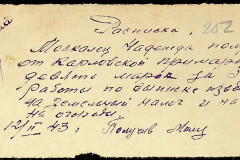 Расписка. 252
Москалец Надежда пол
от Карловской примари
девять марок за
Работы по выписке изве
на земельный налог и на
на огня
12/II 43 г Получив